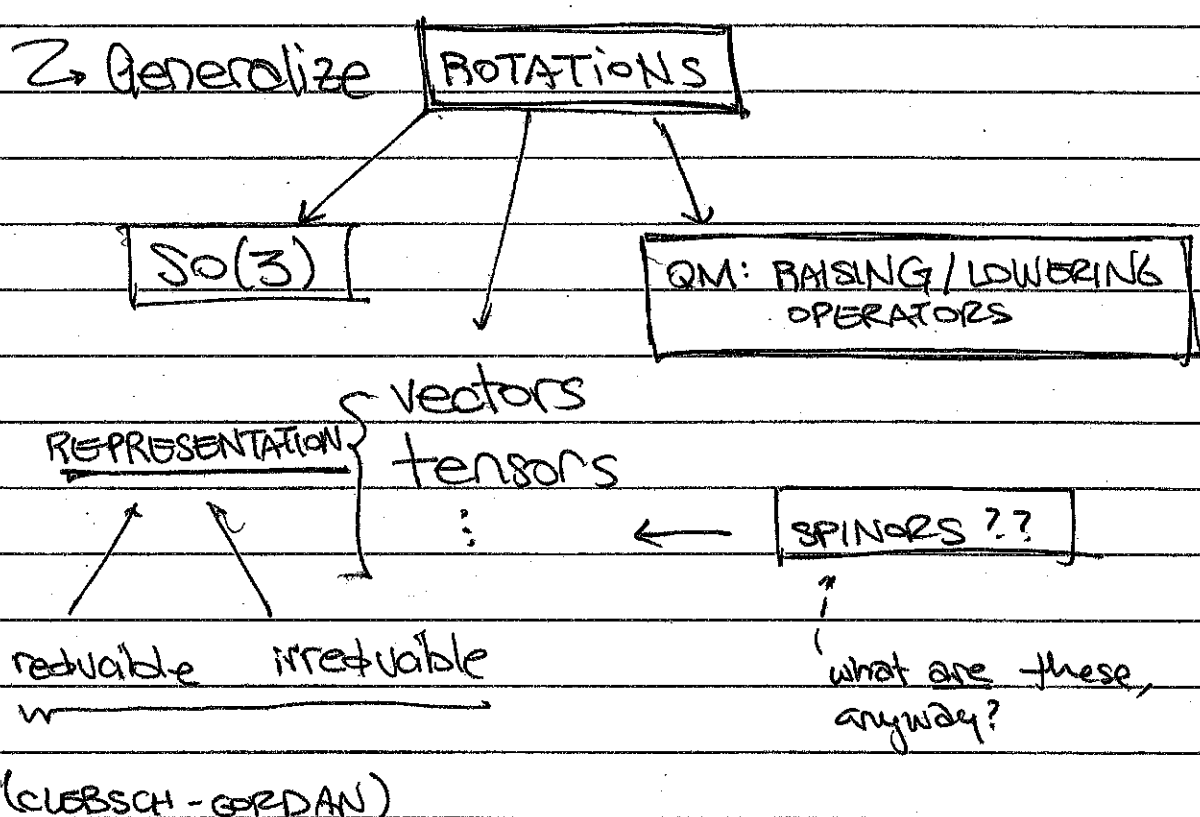 Generalize ROTATIONS
SO(3)
QM: RAISING/LOWERING
OPERATORS
vectors
REPRESENTATION
tensors
⋮
SPINORS??
reducible irreducible
what are these,
anyway?
(CLEBSCH-GORDAN)